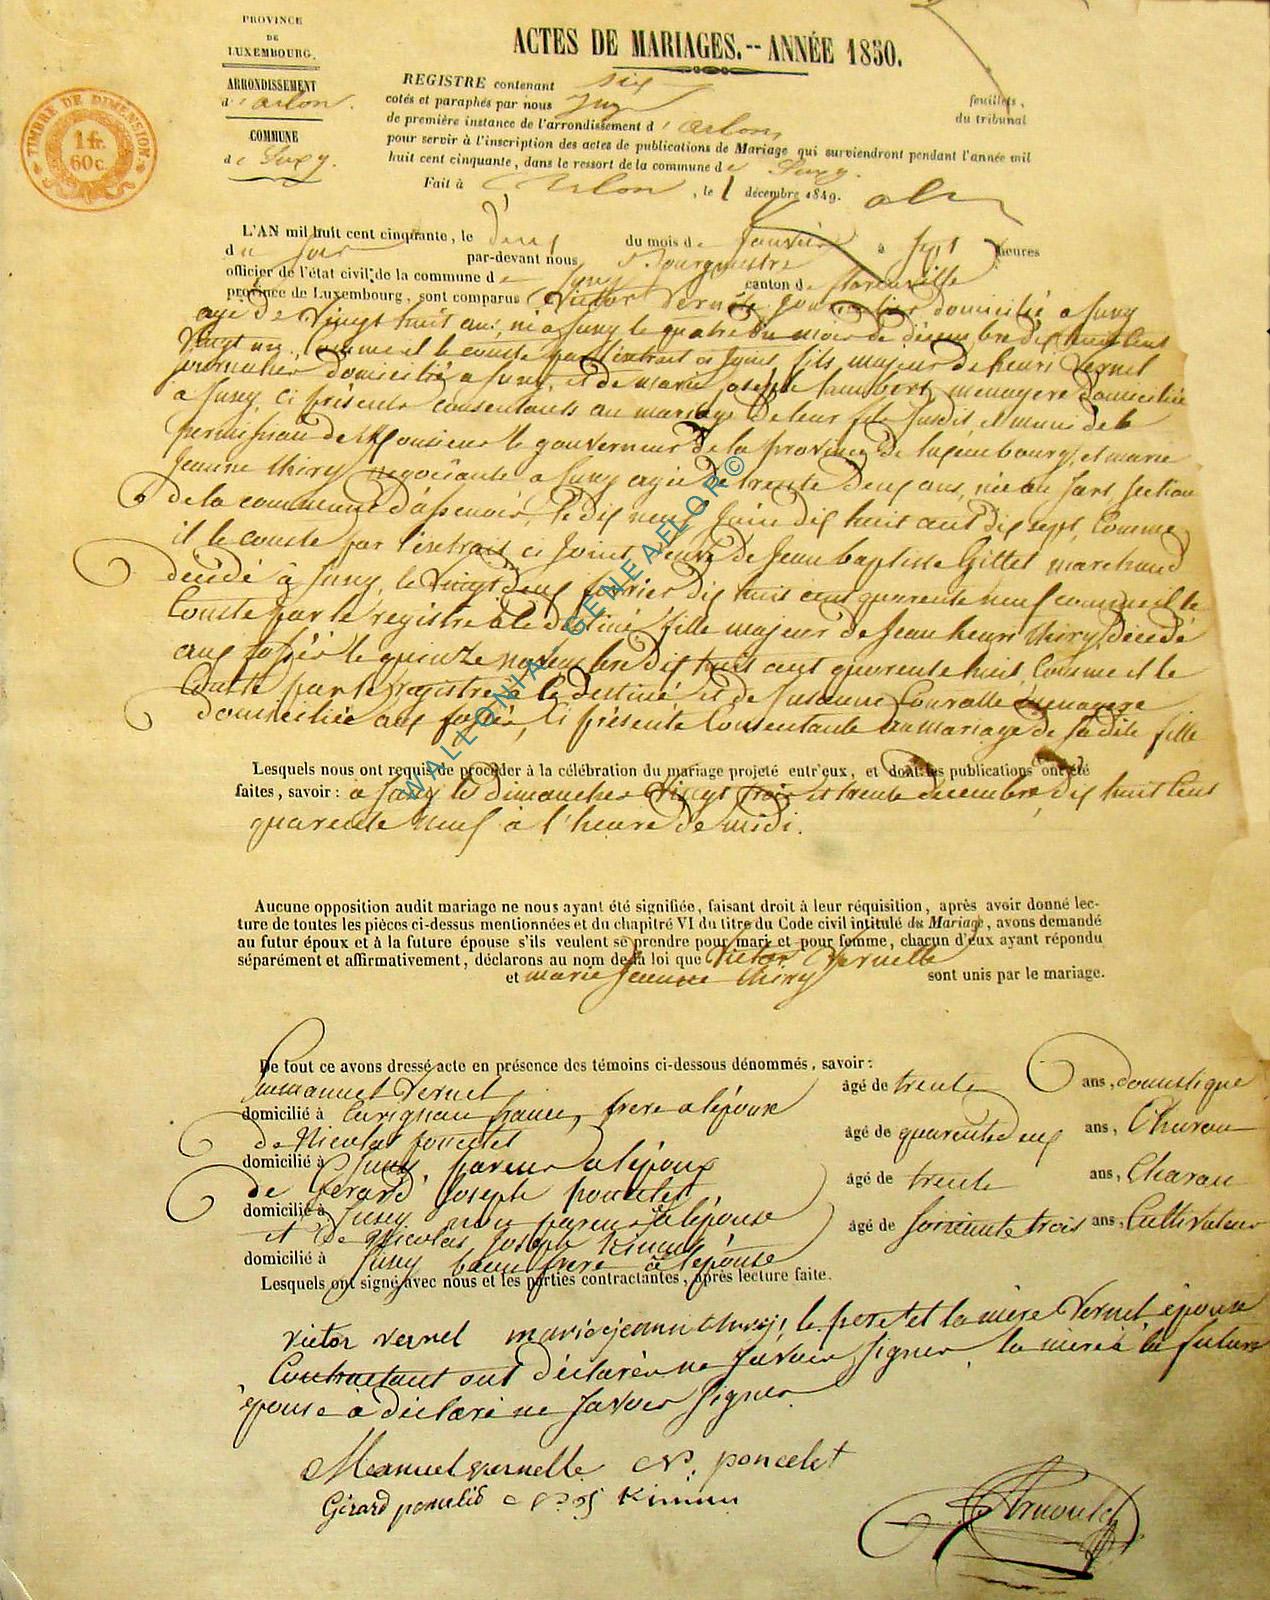 PROVINCE
DE
LUXEMBOURG.
ARRONDISSEMENT
d'arlon.
COMMUNE
de Suxy.
TIMBRE DE DIMENSION
1 fr.
60 c.
ACTES DE MARIAGES.-- ANNÉE 1850.
REGISTRE contenant six feuillets,
cotés et paraphés par nous juge du tribunal
de première instance de l'arrondissement d'arlon
pour servir à l'inscription des actes de publications de Mariage qui surviendront pendant l'année mil
huit cent cinquante, dans le ressort de la commune de Suxy.
Fait à Arlon, le 1 décembre 1849.
L'AN mil huit cent cinquante, le deux du mois de janvier à sept heures
du soir par-devant nous Bourgmestre
officier de l'état civil de la commune de Suxy canton de florenville
province de Luxembourg, sont comparus Victor Vernelle journalier domicilié a Suxy
agé de Vingt huit ans, né a Suxy le quatre du mois de décembre dix huit cent
Vingt un, comme il le conste par l'extrait ci joint, fils majeur de henri Vernel
journalier domicilié a Suxy, et de marie josephe lambert, menagere domiciliée
a Suxy, ci présents consentants au mariage de leur fils susdit et munis de la
permission de Monsieur le gouverneur de la province de luxembourg, et marie
jeanne thiry negociante a Suxy agée de trente deux ans, née au sart, section
de la commune d'assenois, le dix neuf juin dix huit cent dix sept, comme
il le conste par l'extrait ci joint, veuve de Jean baptiste Gillet marchand
décédé à Suxy, le Vingt deux fevrier dix huit cent quarente neuf comme il le
Conste par le registre à le destiné, fille majeur de Jean henri thiry, décédé
aux fossés le quinze novembre dix huit cent quarente huit, comme il le
Conste par le registre à le destiné et de susanne menagere
domiciliée aux fossés, ci présente Consentante au mariage de sa dite fille
Lesquels nous ont requis de procéder à la célébration du mariage projeté entr'eux, et dont les publications ont été
faites, savoir : a Suxy les dimanches Vingt trois et trente decembre, dix huit cent
quarente neuf à l'heure de midi.
Aucune opposition audit mariage ne nous ayant été signifiée, faisant droit à leur réquisition, après avoir donné lec-
ture de toutes les pièces ci-dessus mentionnées et du chapitre VI du titre du Code civil intitulé du Mariage, avons demandé
au futur époux et à la future épouse s'ils veulent se prendre pour mari et pour femme, chacun d'eux ayant répondu
séparément et affirmativement, déclarons au nom de la loi que Victor Vernelle
et marie Jeanne thiry sont unis par le mariage.
De tout ce avons dressé acte en présence des témoins ci-dessous dénommés, savoir :
Emmanuel Vernel âgé de trente ans, domestique
domicilié à Carignan france, frere a l'époux
de Nicolas poncelet âgé de quarente deux ans, Charon
domicilié à Suxy, parens a l'époux
de Gerard Joseph poncelet âgé de trente ans, Charon
domicilié à Suxy non parens a l'épouse
et de Nicolas Joseph âgé de soixante trois ans, Cultivateur
domicilié à Suxy beau frere a l'épouse
Lesquels ont signé avec nous et les parties contractantes, après lecture faite.
victor vernel marie jeanne thiry, le pere et la mere Vernel, époux
Contractant ont déclarér ne savoir signer, la mere a la future
épouse à déclaré ne savoir signer
Manuel vernelle N. poncelet
Gérard poncelet
WALLONIA-GENEAFLOR©